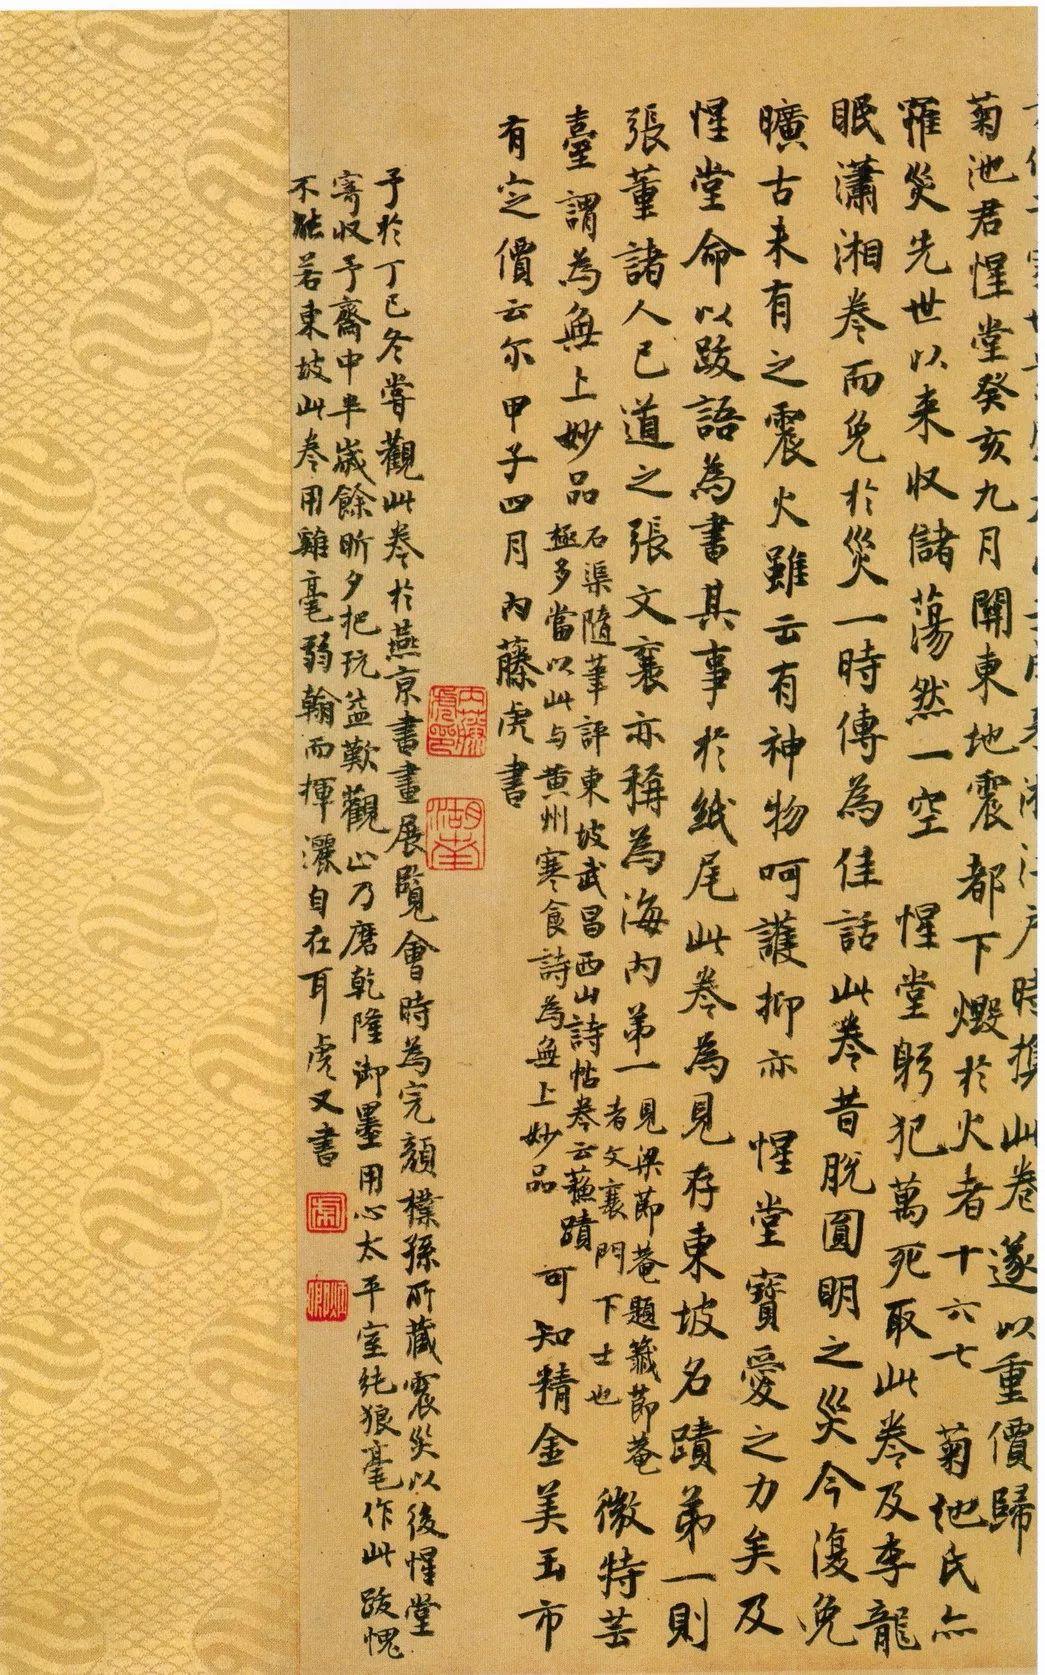 時攜此卷遂以重價歸
菊池君惺堂癸亥九月關東地震都下燬於火者十六七菊池氏亦
罹災先世以来收儲蕩然一空 惺堂躬犯萬死取此卷及李龍
眠瀟湘卷而免於災一時傳為佳話此卷昔脫圓明之災今復免
曠古未有之震火雖云有神物呵護抑亦 惺堂寶愛之力矣及
惺堂命以跋語為書其事於紙尾此卷為見存東坡名蹟第一則
張董諸人已道之張文襄亦稱為海內第一 見梁節菴題籤節菴者文襄門下士也 微特芸
臺謂為無上妙品 石渠隨筆評東坡武昌西山詩帖卷云蘇蹟極多當以此与黄州寒食詩為無上妙品 可知精金美玉市
有定價云尔甲子四月內藤虎書
內藤虎印
湖南
予於丁巳冬嘗觀此卷於燕京書畫展覽會時為完顏樸孫所藏震災以後惺堂
寄收予齋中半歲餘昕夕把玩益歎觀止乃磨乾隆御墨用心太平室純狼毫作此跋愧
不能若東坡此卷用雞毫弱翰而揮灑自在耳虎又書